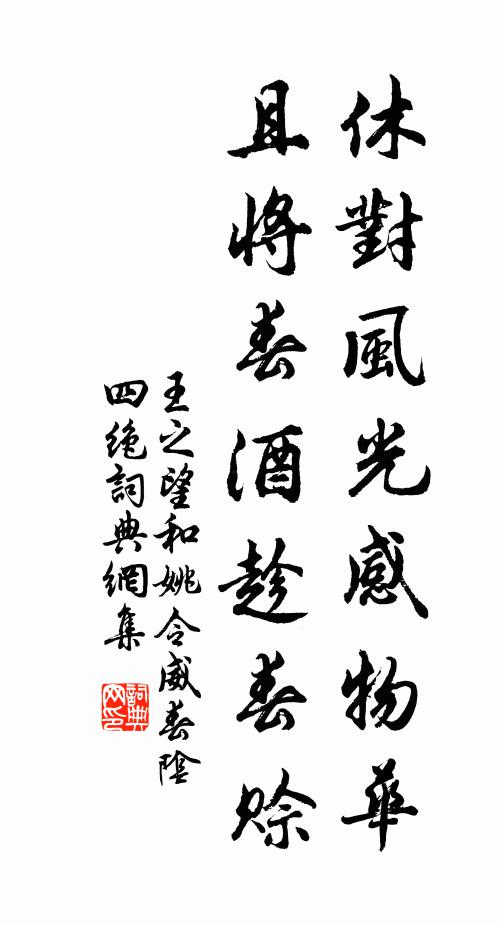 休對風光感物華
且將春酒趁春賒
王之望和姚令威春陰
四絶詞典網集
詞典
网印